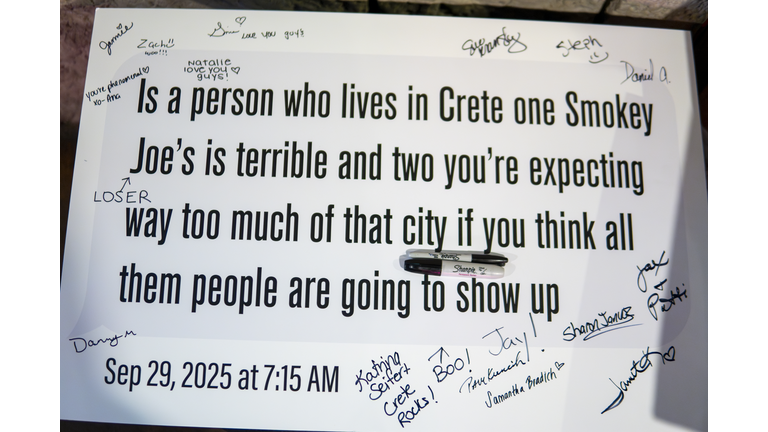 Jammie
Zach
Love you guys
Natalie
love you
guys!
you're phenomenal
xo-Ana
Steph
Daniel A.
Is a person who lives in Crete one Smokey
Joe's is terrible and two you're expecting
LOSER
way too much of that city if you think all
Sharpie
Sharpie
them people are going to show up
Jax
+
Patti
Sharon Jencius
Danny M
Sep 29, 2025 at 7:15 AM
Katrina
Seifert
Crete
Rocks!
BOO!
Jay!
Samantha Bradich
Janet K